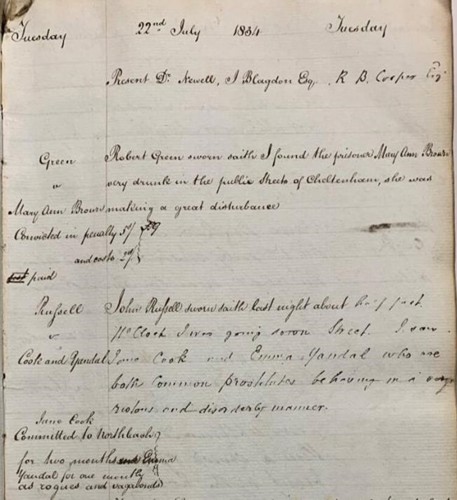 Tuesday 22nd July 1834 Tuesday
Present Dr. Newell, J Blagdon Esq, R B. Cooper Esq
Green
v
Mary Ann Brown
Convicted in penalty 5/
and costs
paid
Robert Green sworn saith I found the prisoner Mary Ann Brown
very drunk in the public Streets of Cheltenham, she was
making a great disturbance
Russell
v
Cook and Yandal
Jane Cook
Committed to Northleach
for two months and Emma
Yandal for one month
as rogues and vagabonds
John Russell sworn saith last night about half past
11 oClock I was going down Street. I saw
Jane Cook and Emma Yandal who are
both Common prostitutes behaving in a very
riotous and disorderly manner.